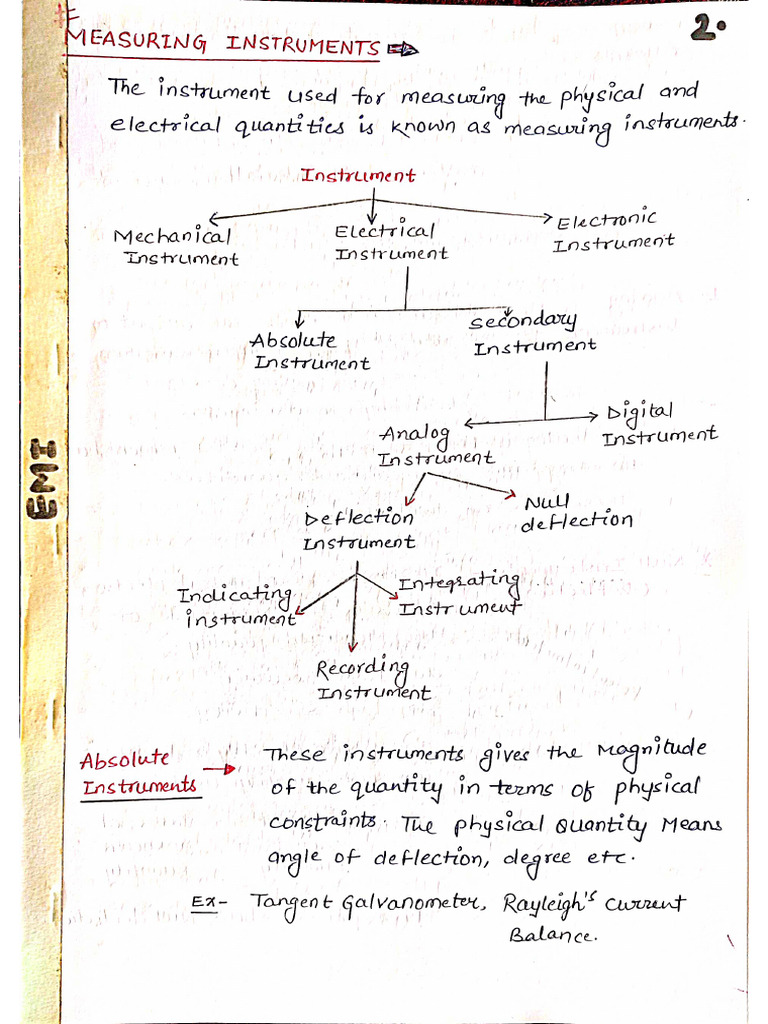 # MEASURING INSTRUMENTS ⇒
2.
The instrument used for measuring the physical and
electrical quantities is known as measuring instruments.
Instrument
Mechanical
Instrument
Electrical
Instrument
Electronic
Instrument
Absolute
Instrument
Secondary
Instrument
Analog
Instrument
Digital
Instrument
Deflection
Instrument
Null
deflection
Indicating
instrument
Integrating
Instrument
Recording
Instrument
EMI
Absolute
Instruments →
These instruments gives the Magnitude
of the quantity in terms of physical
constraints. The physical Quantity Means
angle of deflection, degree etc.
Ex- Tangent Galvanometer, Rayleigh's Current
Balance.